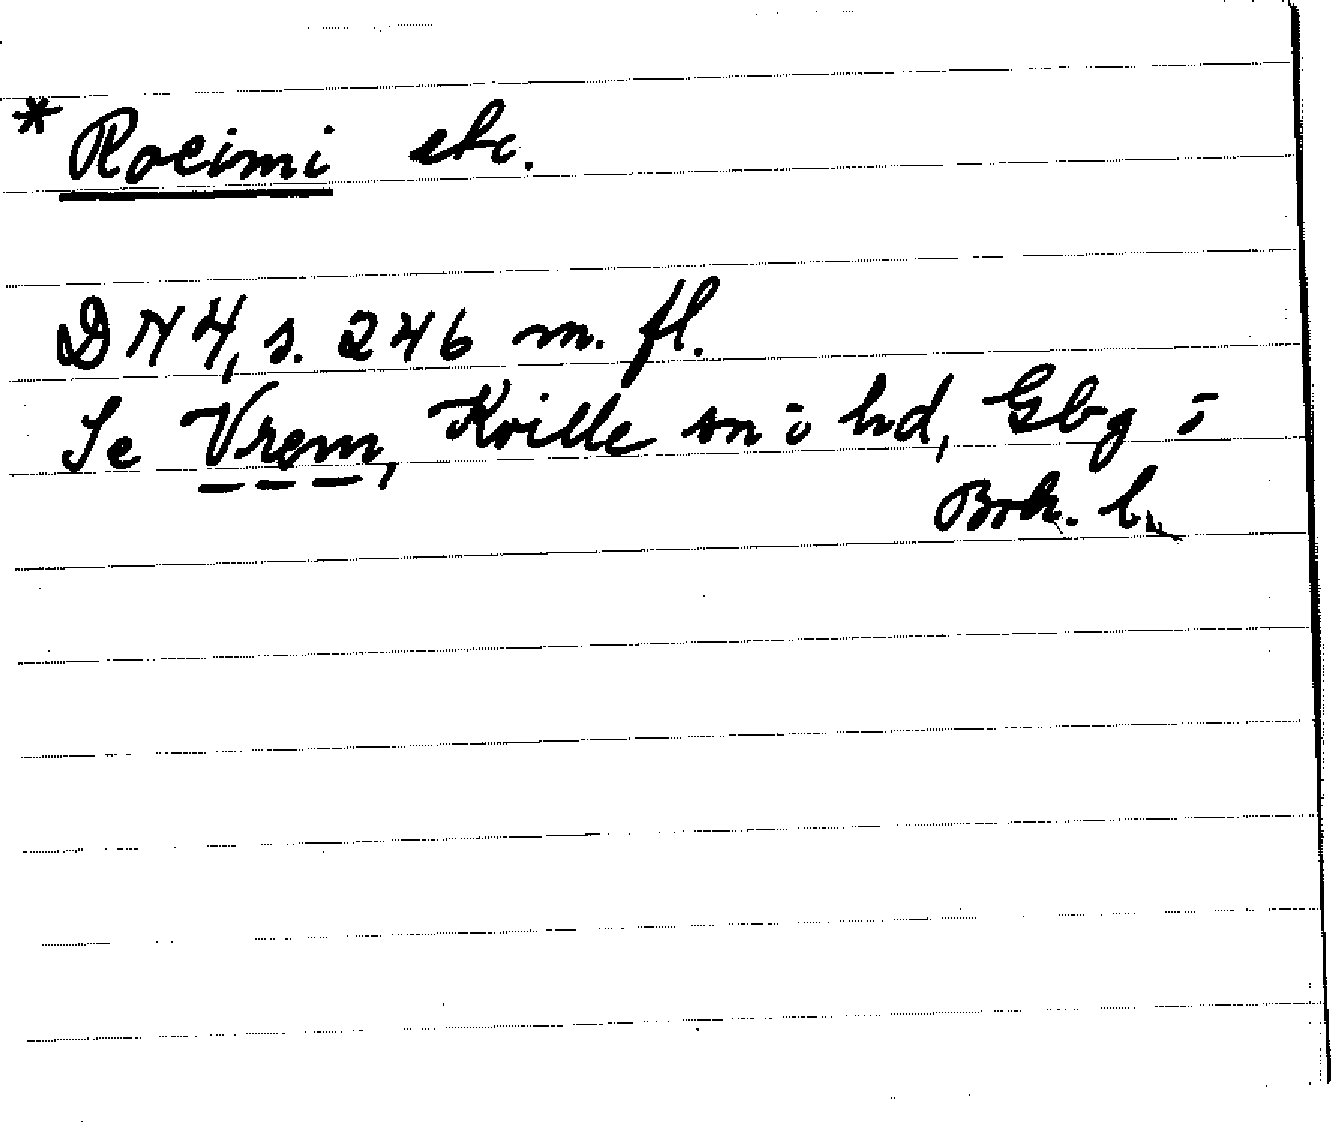 * Roeimi etc.
DN 4, s. 246 m. fl.
Se Vrem, Kville sn o hd, Gbg o
Boh. l.